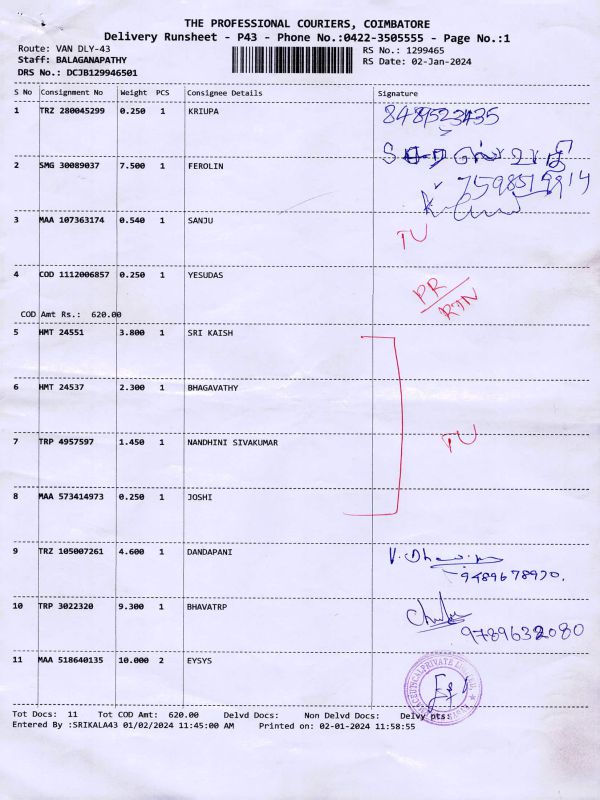 THE PROFESSIONAL COURIERS, COIMBATORE
Delivery Runsheet - P43 - Phone No.:0422-3505555 - Page No.:1
Route: VAN DLY-43 RS No.: 1299465
Staff: BALAGANAPATHY RS Date: 02-Jan-2024
DRS No.: DCJB129946501
S No Consignment No Weight PCS Consignee Details Signature
1 TRZ 280045299 0.250 1 KRIUPA
2 SMG 30089037 7.500 1 FEROLIN
3 MAA 107363174 0.540 1 SANJU TU
4 COD 1112006857 0.250 1 YESUDAS PR/RTN
COD Amt Rs.: 620.00
5 HMT 24551 3.800 1 SRI KAISH
6 HMT 24537 2.300 1 BHAGAVATHY
7 TRP 4957597 1.450 1 NANDHINI SIVAKUMAR TU
8 MAA 573414973 0.250 1 JOSHI
9 TRZ 105007261 4.600 1 DANDAPANI
10 TRP 3022320 9.300 1 BHAVATRP
9789632080
11 MAA 518640135 10.000 2 EYSYS
Tot Docs: 11 Tot COD Amt: 620.00 Delvd Docs: Non Delvd Docs: Delvy pts:
Entered By :SRIKALA43 01/02/2024 11:45:00 AM Printed on: 02-01-2024 11:58:55